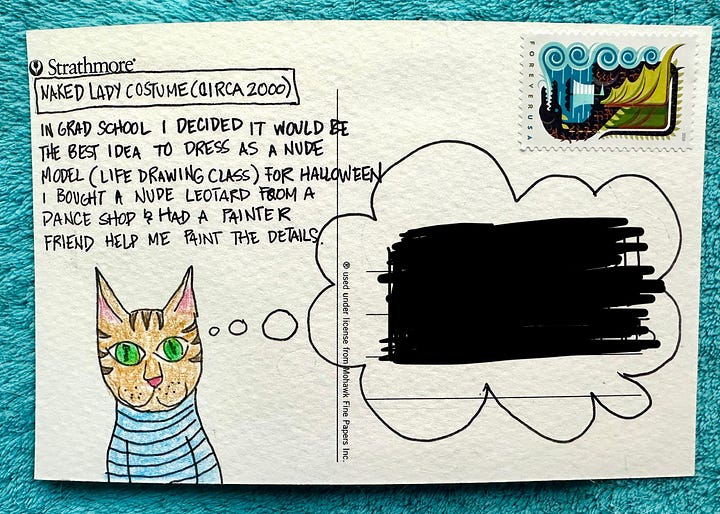 Strathmore®
NAKED LADY COSTUME (CIRCA 2000)
IN GRAD SCHOOL I DECIDED IT WOULD BE
THE BEST IDEA TO DRESS AS A NUDE
MODEL (LIFE DRAWING CLASS) FOR HALLOWEEN
I BOUGHT A NUDE LEOTARD FROM A
DANCE SHOP & HAD A PAINTER
FRIEND HELP ME PAINT THE DETAILS.
FOREVER USA
® used under license from Mohawk Fine Papers Inc.